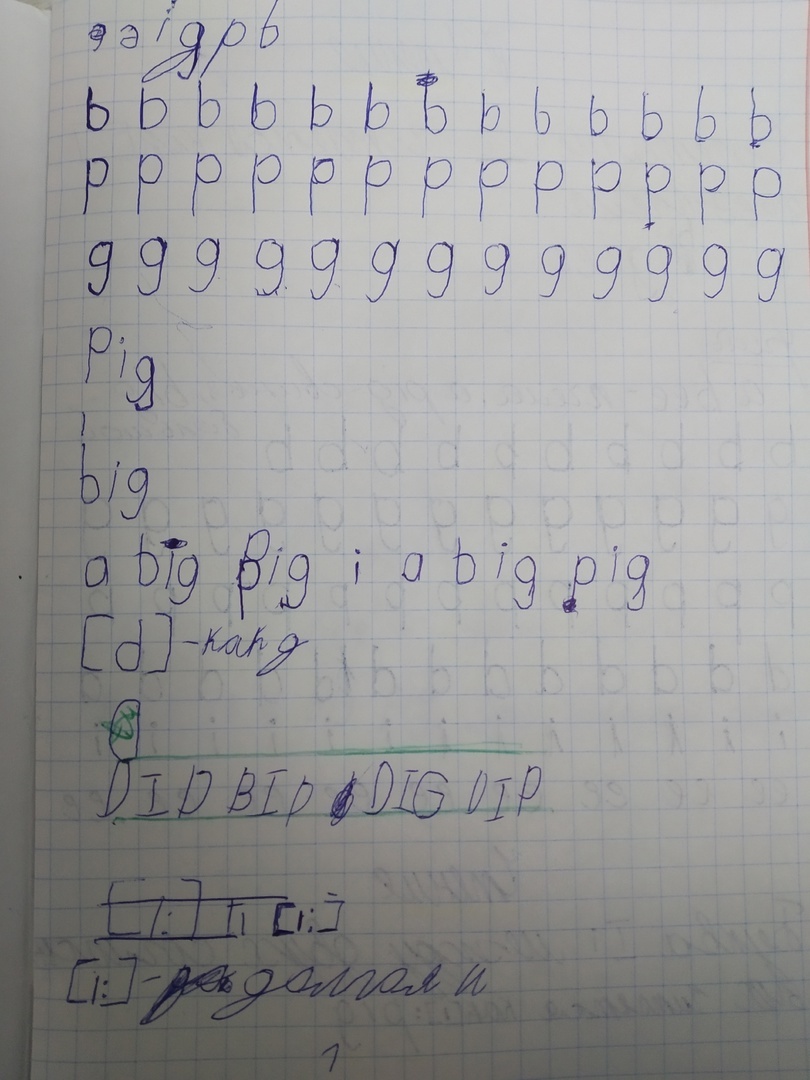 b b b b b b b b b b b b b
p p p p p p p p p p p p p
g g g g g g g g g g g g g
Pig
big
a big pig i a big pig
[d]-как д
DID BID DIG DIP
[i:] [i:]
[i:]- долгая и
1